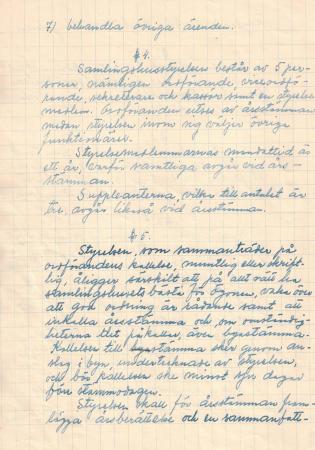 7) behandla övriga ärenden.
§ 4.
Samlingshusstyrelsen består av 5 per-
soner, nämligen ordförande, viceordfö-
rande, sekreterare och kassör samt en styrelse
medlem. Ordföranden utses av årsstämman
medan styrelsen inom sig väljer övriga
funktionärer.
Styrelsemedlemmarnas mandattid är
ett år, varför samtliga avgår vid års-
stämman.
Suppleanterna, vilka till antalet är
tre, avgår likaså vid årsstämman.
§ 5.
Styrelsen, som sammanträder på
ordförandens kallelse, muntlig eller skrift-
lig, åligger särskilt att på allt sätt ha
samlingshusets bästa för ögonen, vaka över
att god ordning är rådande samt att
inkalla årsstämma och om omständig-
heterna det påkallar, även bystämma.
Kallelsen till stämma sker genom an-
slag i byn, undertecknade av styrelsen,
och bör kallelsen ske minst sju dagar
före stämmodagen.
Styrelsen skall för årsstämman fram-
lägga årsberättelse och en sammanfatt-